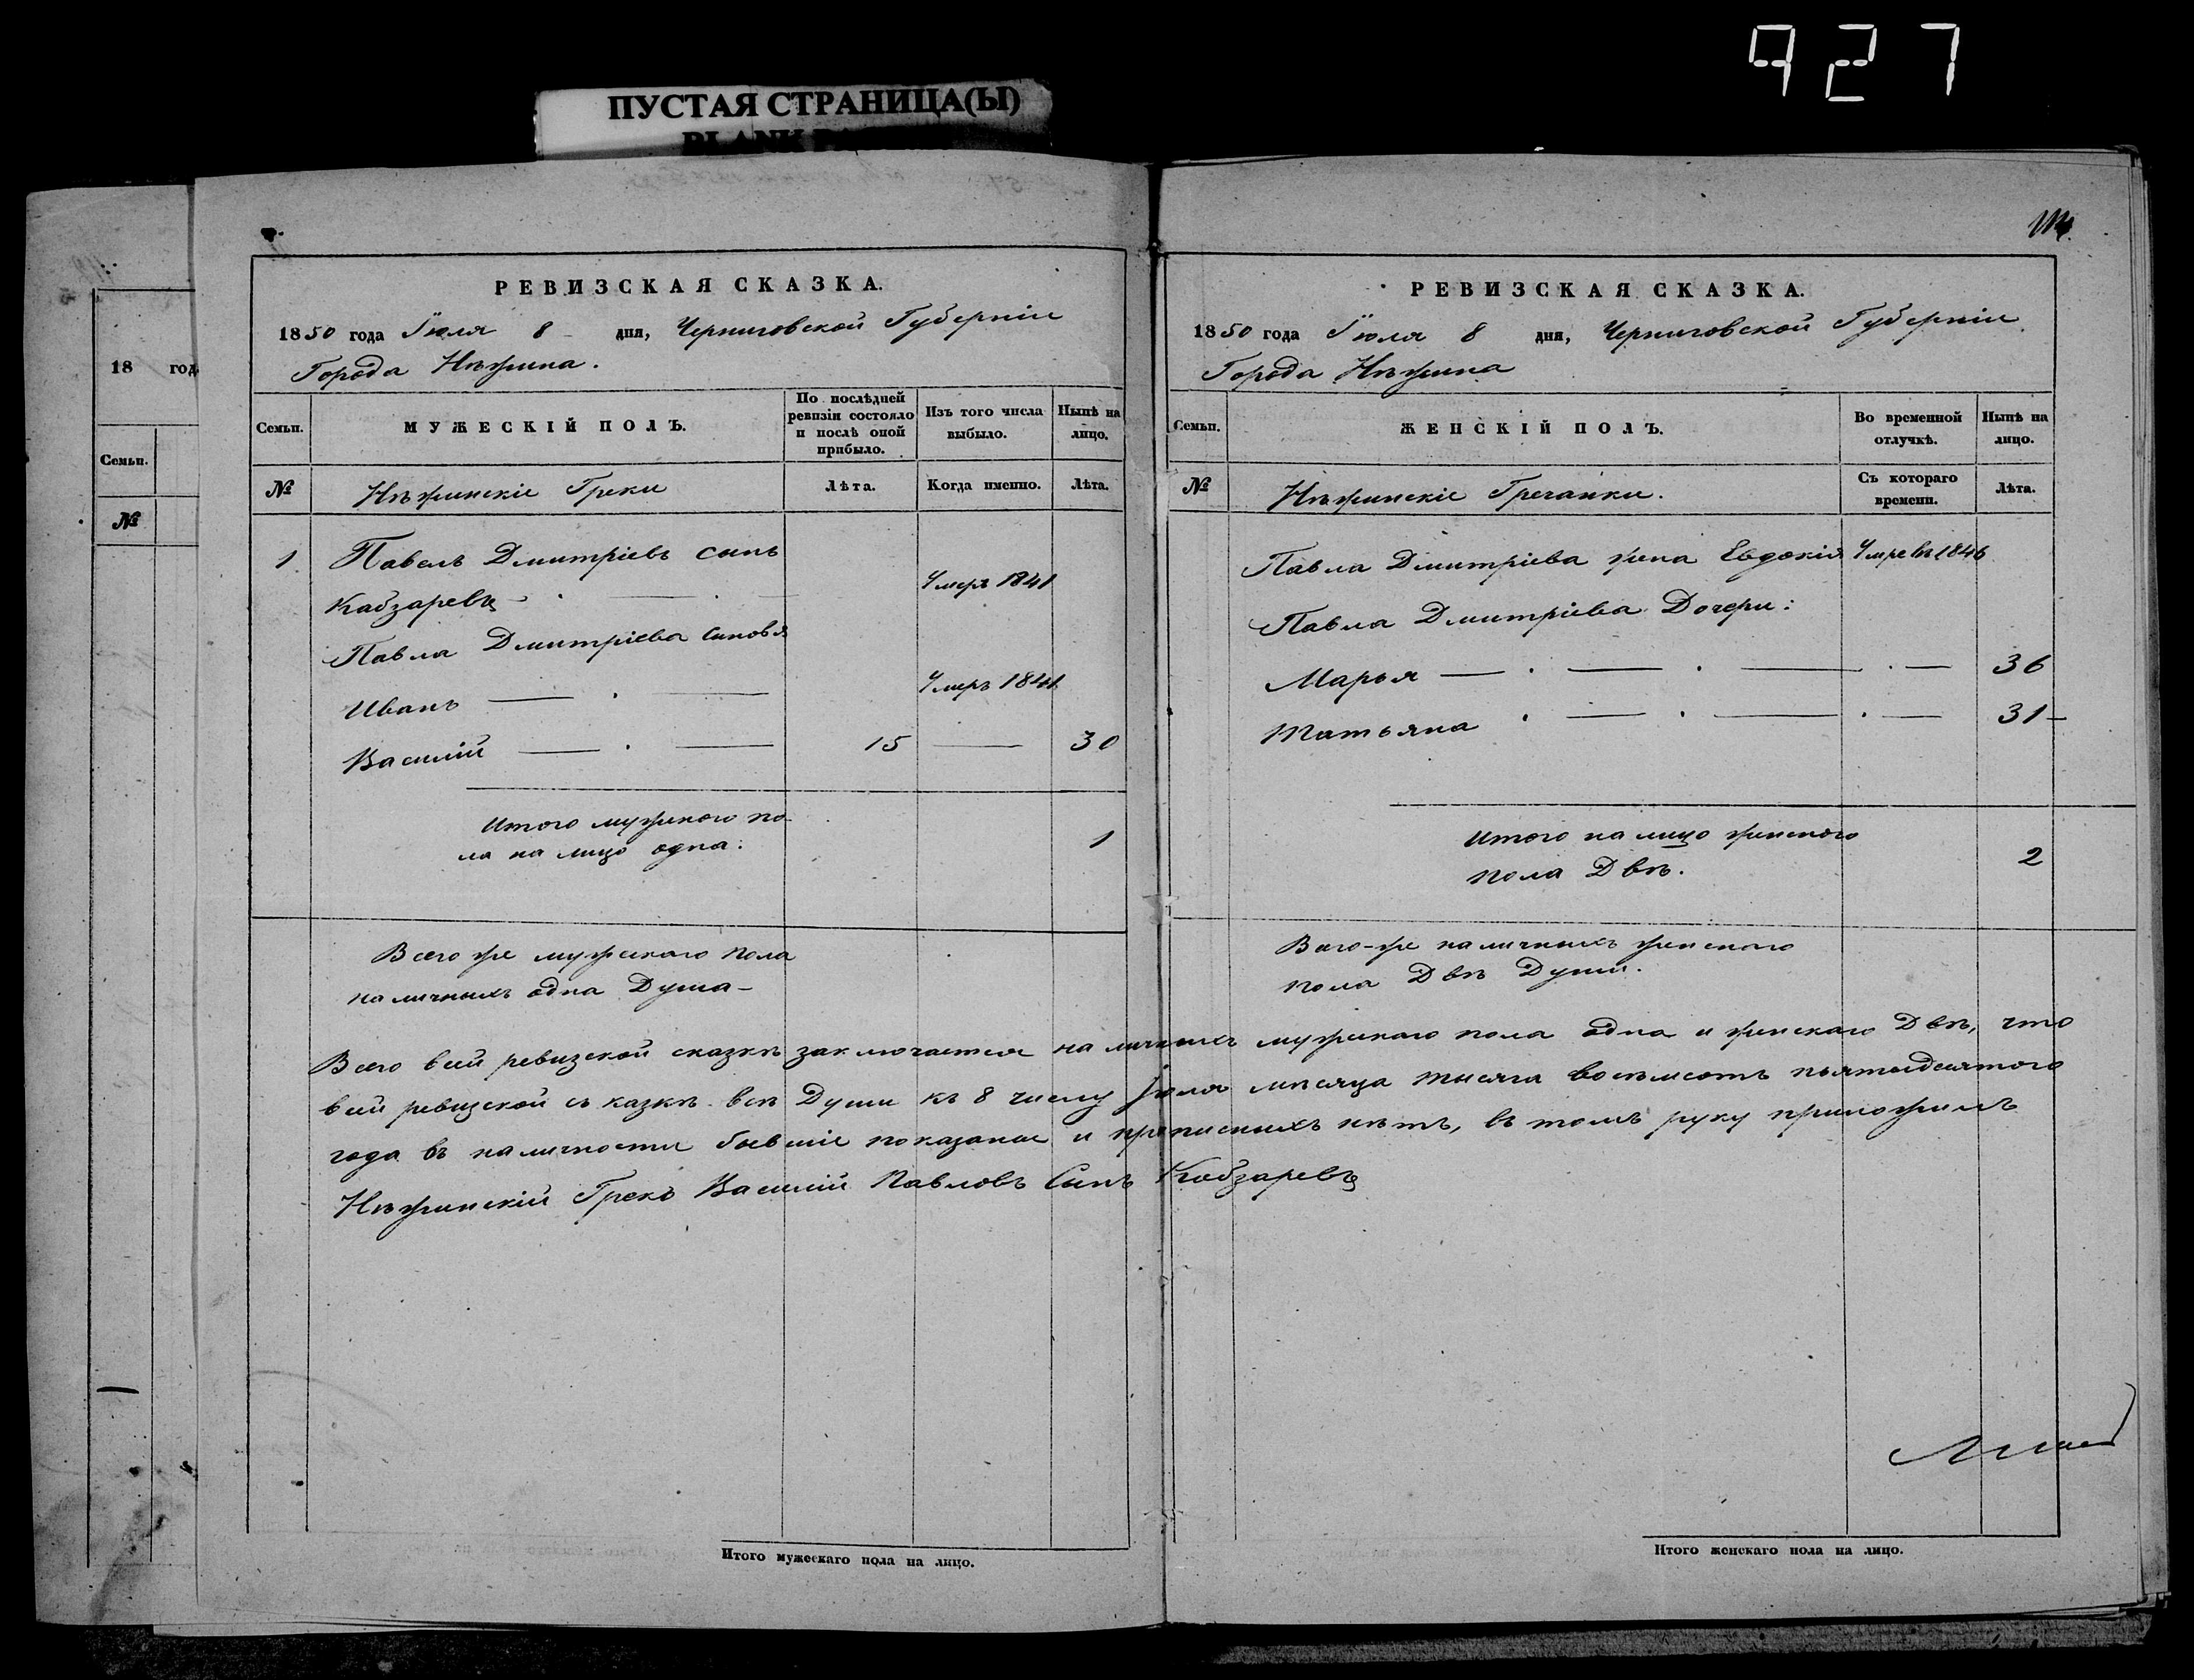 927
ПУСТАЯ СТРАНИЦА(Ы)
18 год
Семьи.
№
РЕВИЗСКАЯ СКАЗКА.
1850 года Іюля 8 дня, Черниговской Губерніи
Города Нѣжина.
Семьи.
МУЖЕСКІЙ ПОЛЪ.
По послѣдней ревизіи состояло и послѣ оной прибыло.
Изъ того числа выбыло.
Нынѣ на лицо.
№
Нѣжинскіе Греки
Лѣта.
Когда именно.
Лѣта.
1 Павелъ Дмитріевъ сынъ
Кабзаревъ Умеръ 1841
Павла Дмитріева сыновья
Иванъ Умеръ 1841
Василій 15 30
Итого мужскаго по-
ла на лицо одна: 1
Всего же мужскаго пола
наличныхъ одна Душа
РЕВИЗСКАЯ СКАЗКА.
1850 года Іюля 8 дня, Черниговской Губерніи
Города Нѣжина
Семьи.
ЖЕНСКІЙ ПОЛЪ.
Во временной отлучкѣ.
Нынѣ на лицо.
№
Нѣжинскіе Гречанки.
Съ котораго времени.
Лѣта.
Павла Дмитріева жена Евдокія 1846
Павла Дмитріева Дочери:
Марья 36
Татьяна 31
Итого на лицо женскаго
пола Двѣ. 2
Всего-же наличныхъ женскаго
пола Двѣ Души.
Всего всей ревизской сказкѣ заключается наличныхъ мужскаго пола одна и женскаго Двѣ, что
всей ревизской съказкѣ всѣ Души къ 8 числу Іюля мѣсяца тысяча восемсотъ пятьдесятого
года въ наличности бывшіе показаные и прописныхъ нѣтъ, въ томъ руку приложилъ
Нѣжинскій Грекъ Василій Павловъ Сынъ Кобзаревъ
Итого мужескаго пола на лицо.
Итого женскаго пола на лицо.